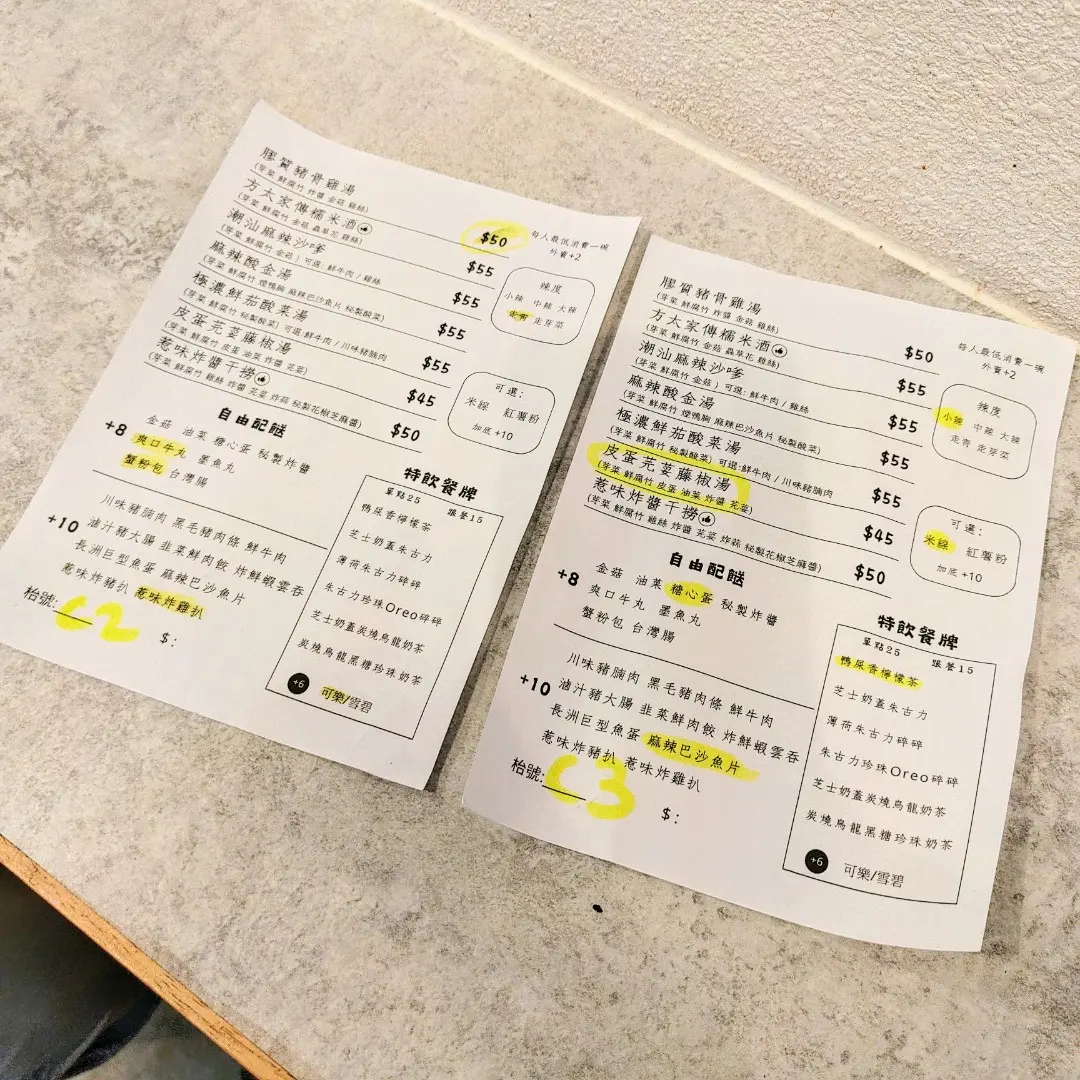 膠質豬骨雞湯
(芽菜 鮮腐竹 炸醬 金菇 雞絲)
$50
方太家傳糯米酒
(芽菜 鮮腐竹 金菇 蟲草花 雞絲)
$55
潮汕麻辣沙嗲
(芽菜 鮮腐竹 金菇) 可選: 鮮牛肉 / 雞絲
$55
麻辣酸金湯
(芽菜 鮮腐竹 煙鴨胸 麻辣巴沙魚片 秘製酸菜)
$55
極濃鮮茄酸菜湯
(芽菜 鮮腐竹 秘製酸菜) 可選:鮮牛肉 / 川味豬腩肉
$55
皮蛋芫荽藤椒湯
(芽菜 鮮腐竹 皮蛋 油菜 炸醬 芫荽)
$45
惹味炸醬干撈
(芽菜 鮮腐竹 雞絲 炸醬 芫荽 炸蒜 秘製花椒芝麻醬)
$50
每人最低消費一碗
外賣+2
辣度
小辣 中辣 大辣
走青 走芽菜
可選:
米線 紅薯粉
加底 +10
自由配餸
+8
金菇 油菜 糖心蛋 秘製炸醬
爽口牛丸 墨魚丸
蟹粉包 台灣腸
+10
川味豬腩肉 黑毛豬肉條 鮮牛肉
滷汁豬大腸 韭菜鮮肉餃 炸鮮蝦雲吞
長洲巨型魚蛋 麻辣巴沙魚片
惹味炸豬扒 惹味炸雞扒
枱號: C2
$:
特飲餐牌
單點25 跟餐15
鴨屎香檸檬茶
芝士奶蓋朱古力
薄荷朱古力碎碎
朱古力珍珠Oreo碎碎
芝士奶蓋炭燒烏龍奶茶
炭燒烏龍黑糖珍珠奶茶
+6 可樂/雪碧
膠質豬骨雞湯
(芽菜 鮮腐竹 炸醬 金菇 雞絲)
$50
方太家傳糯米酒
(芽菜 鮮腐竹 金菇 蟲草花 雞絲)
$55
潮汕麻辣沙嗲
(芽菜 鮮腐竹 金菇) 可選: 鮮牛肉 / 雞絲
$55
麻辣酸金湯
(芽菜 鮮腐竹 煙鴨胸 麻辣巴沙魚片 秘製酸菜)
$55
極濃鮮茄酸菜湯
(芽菜 鮮腐竹 秘製酸菜) 可選:鮮牛肉 / 川味豬腩肉
$55
皮蛋芫荽藤椒湯
(芽菜 鮮腐竹 皮蛋 油菜 炸醬 芫荽)
$45
惹味炸醬干撈
(芽菜 鮮腐竹 雞絲 炸醬 芫荽 炸蒜 秘製花椒芝麻醬)
$50
每人最低消費一碗
外賣+2
辣度
小辣 中辣 大辣
走青 走芽菜
可選:
米線 紅薯粉
加底 +10
自由配餸
+8
金菇 油菜 糖心蛋 秘製炸醬
爽口牛丸 墨魚丸
蟹粉包 台灣腸
+10
川味豬腩肉 黑毛豬肉條 鮮牛肉
滷汁豬大腸 韭菜鮮肉餃 炸鮮蝦雲吞
長洲巨型魚蛋 麻辣巴沙魚片
惹味炸豬扒 惹味炸雞扒
枱號: C3
$:
特飲餐牌
單點25 跟餐15
鴨屎香檸檬茶
芝士奶蓋朱古力
薄荷朱古力碎碎
朱古力珍珠Oreo碎碎
芝士奶蓋炭燒烏龍奶茶
炭燒烏龍黑糖珍珠奶茶
+6 可樂/雪碧